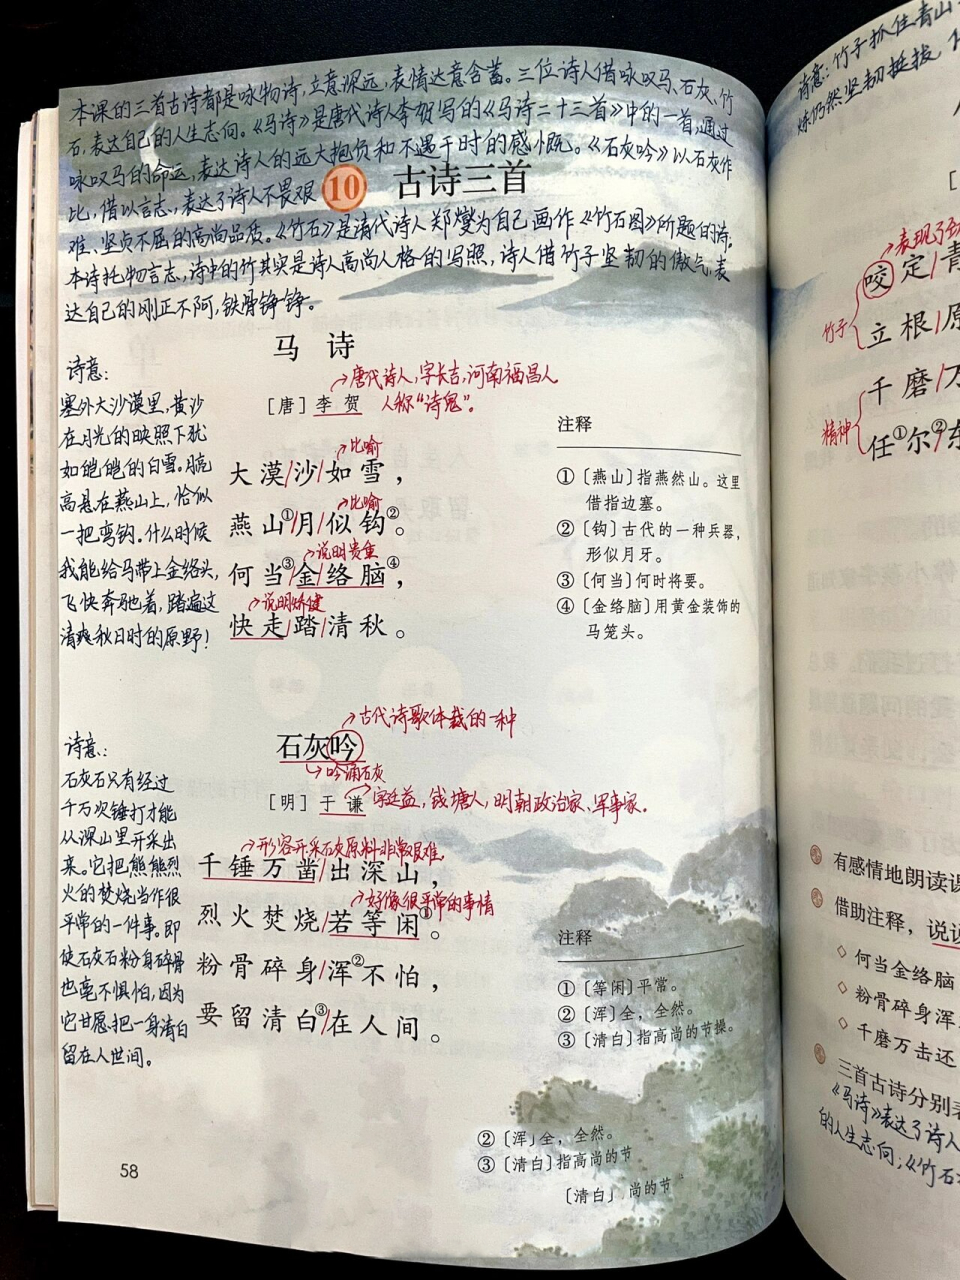 本课的三首古诗都是咏物诗，立意深远，表情达意含蓄。三位诗人借咏叹马、石灰、竹
石，表达自己的人生志向。《马诗》是唐代诗人李贺写的《马诗二十三首》中的一首，通过
咏叹马的命运，表达诗人的远大抱负和不遇于时的感慨。《石灰吟》以石灰作
比，借以言志，表达了诗人不畏艰
难、坚贞不屈的高尚品质。《竹石》是清代诗人郑燮为自己画作《竹石图》所题的诗。
本诗托物言志，诗中的竹其实是诗人高尚人格的写照，诗人借竹子坚韧的傲气，表
达自己的刚正不阿，铁骨铮铮。
10 古诗三首
马诗
唐代诗人，字长吉，河南福昌人
[唐] 李贺 人称“诗鬼”。
比喻
大漠/沙/如雪，
比喻
燕山①/月/似钩②。
说明贵重
何当③/金络脑④，
说明矫健
快走/踏/清秋。
诗意：
塞外大沙漠里，黄沙
在月光的映照下犹
如皑皑的白雪。月亮
高悬在燕山上，恰似
一把弯钩。什么时候
我能给马带上金络头，
飞快奔驰着，踏遍这
清爽秋日时的原野！
注释
①〔燕山〕指燕然山。这里
借指边塞。
②〔钩〕古代的一种兵器，
形似月牙。
③〔何当〕何时将要。
④〔金络脑〕用黄金装饰的
马笼头。
古代诗歌体裁的一种
石灰吟
吟诵石灰
[明] 于谦 字廷益，钱塘人，明朝政治家、军事家。
形容开采石灰原料非常艰难
千锤万凿/出深山，
好像很平常的事情
烈火焚烧/若等闲①。
粉骨碎身/浑②不怕，
要留清白③/在人间。
诗意：
石灰石只有经过
千万次锤打才能
从深山里开采出
来。它把熊熊烈
火的焚烧当作很
平常的一件事。即
使石灰石粉身碎骨
也毫不惧怕，因为
它甘愿把一身清白
留在人世间。
注释
①〔等闲〕平常。
②〔浑〕全，全然。
③〔清白〕指高尚的节操。
②〔浑」全，全然。
③〔清白〕指高尚的节
〔清白」 尚的节
58
诗意：竹子抓住青山
仍然坚韧挺拔，
表现了
竹子
咬定/青
立根/原
精神
千磨/万
任①尔②/东
有感情地朗读课
借助注释，说说
何当金络脑
粉骨碎身浑
千磨万击还
三首古诗分别表
《马诗》表达了诗人
的人生志向；《竹石